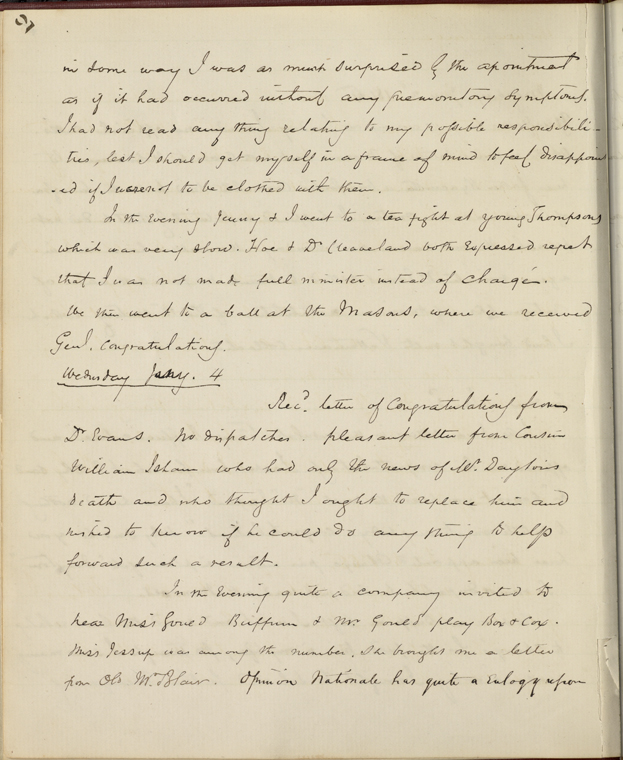 in some way I was as much surprised by the apointment
as if it had occurred without any premonitory symptons.
I had not read any thing relating to my possible responsibili-
ties, lest I should get myself in a frame of mind to feel disappoint
-ed if I were not to be clothed with them.
In the Evening Jenny & I went to a tea fight at young Thompsons
which was very slow. Hoe & Dr Cleaveland both Expressed regret
that I was not made full minister instead of Chargé.
We then went to a ball at the Masons, where we received
Genl. Congratulations.
Wednesday Jany. 4
Recd. letter of Congratulations from
Dr. Evans. No dispatches. pleasant letter from Cousin
William Isham who had only the news of Mr. Dayton's
death and who thought I ought to replace him and
wished to know if he could do any thing to help
forward such a result.
In the Evening quite a company invited to
hear Miss Gould Buffum & Mr. Gould play Box & Cox.
Miss Jessup was among the number. She brought me a letter
from Old Mr. Blair. Opinion Nationale has quite a Eulogy upon